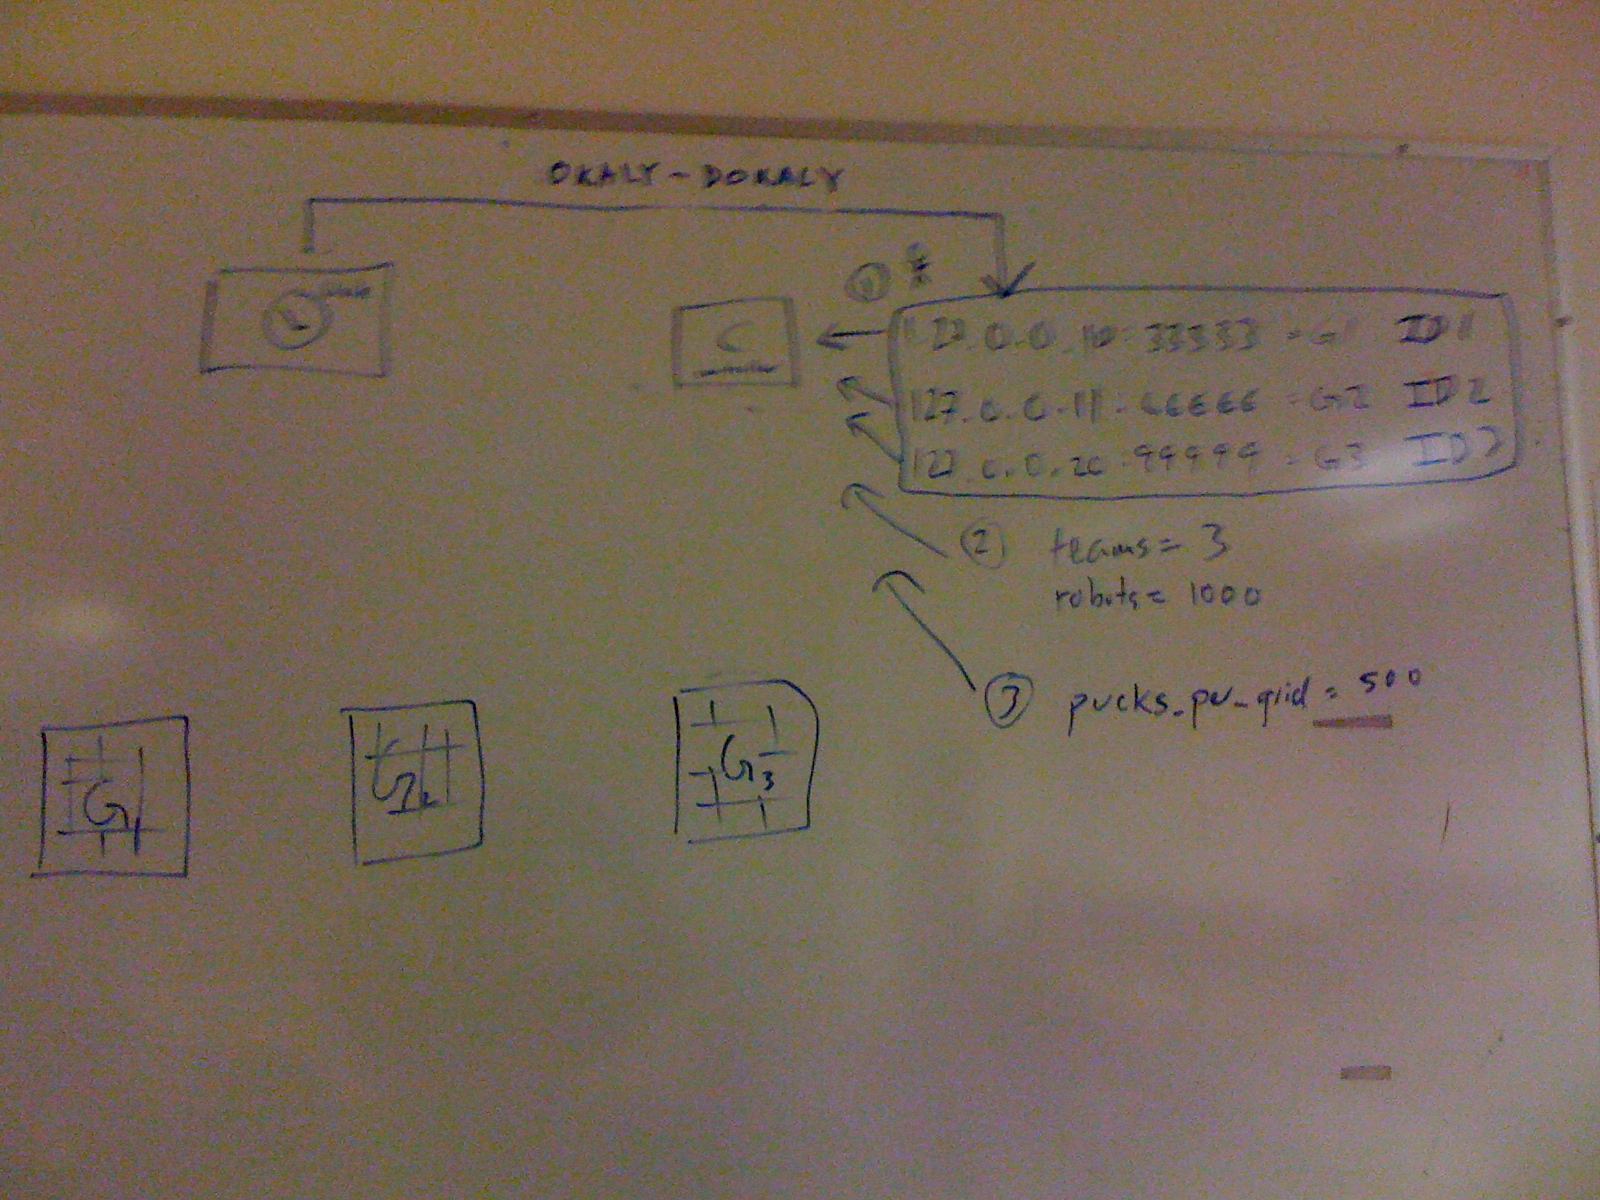 OKALY-DOKALY
1
C
127.0.0.10:33333 = G1 ID1
127.0.0.11:66666 = G2 ID2
127.0.0.20:99999 = G3 ID3
2 teams = 3
robots = 1000
3 pucks_per_grid = 500
G1
G2
G3